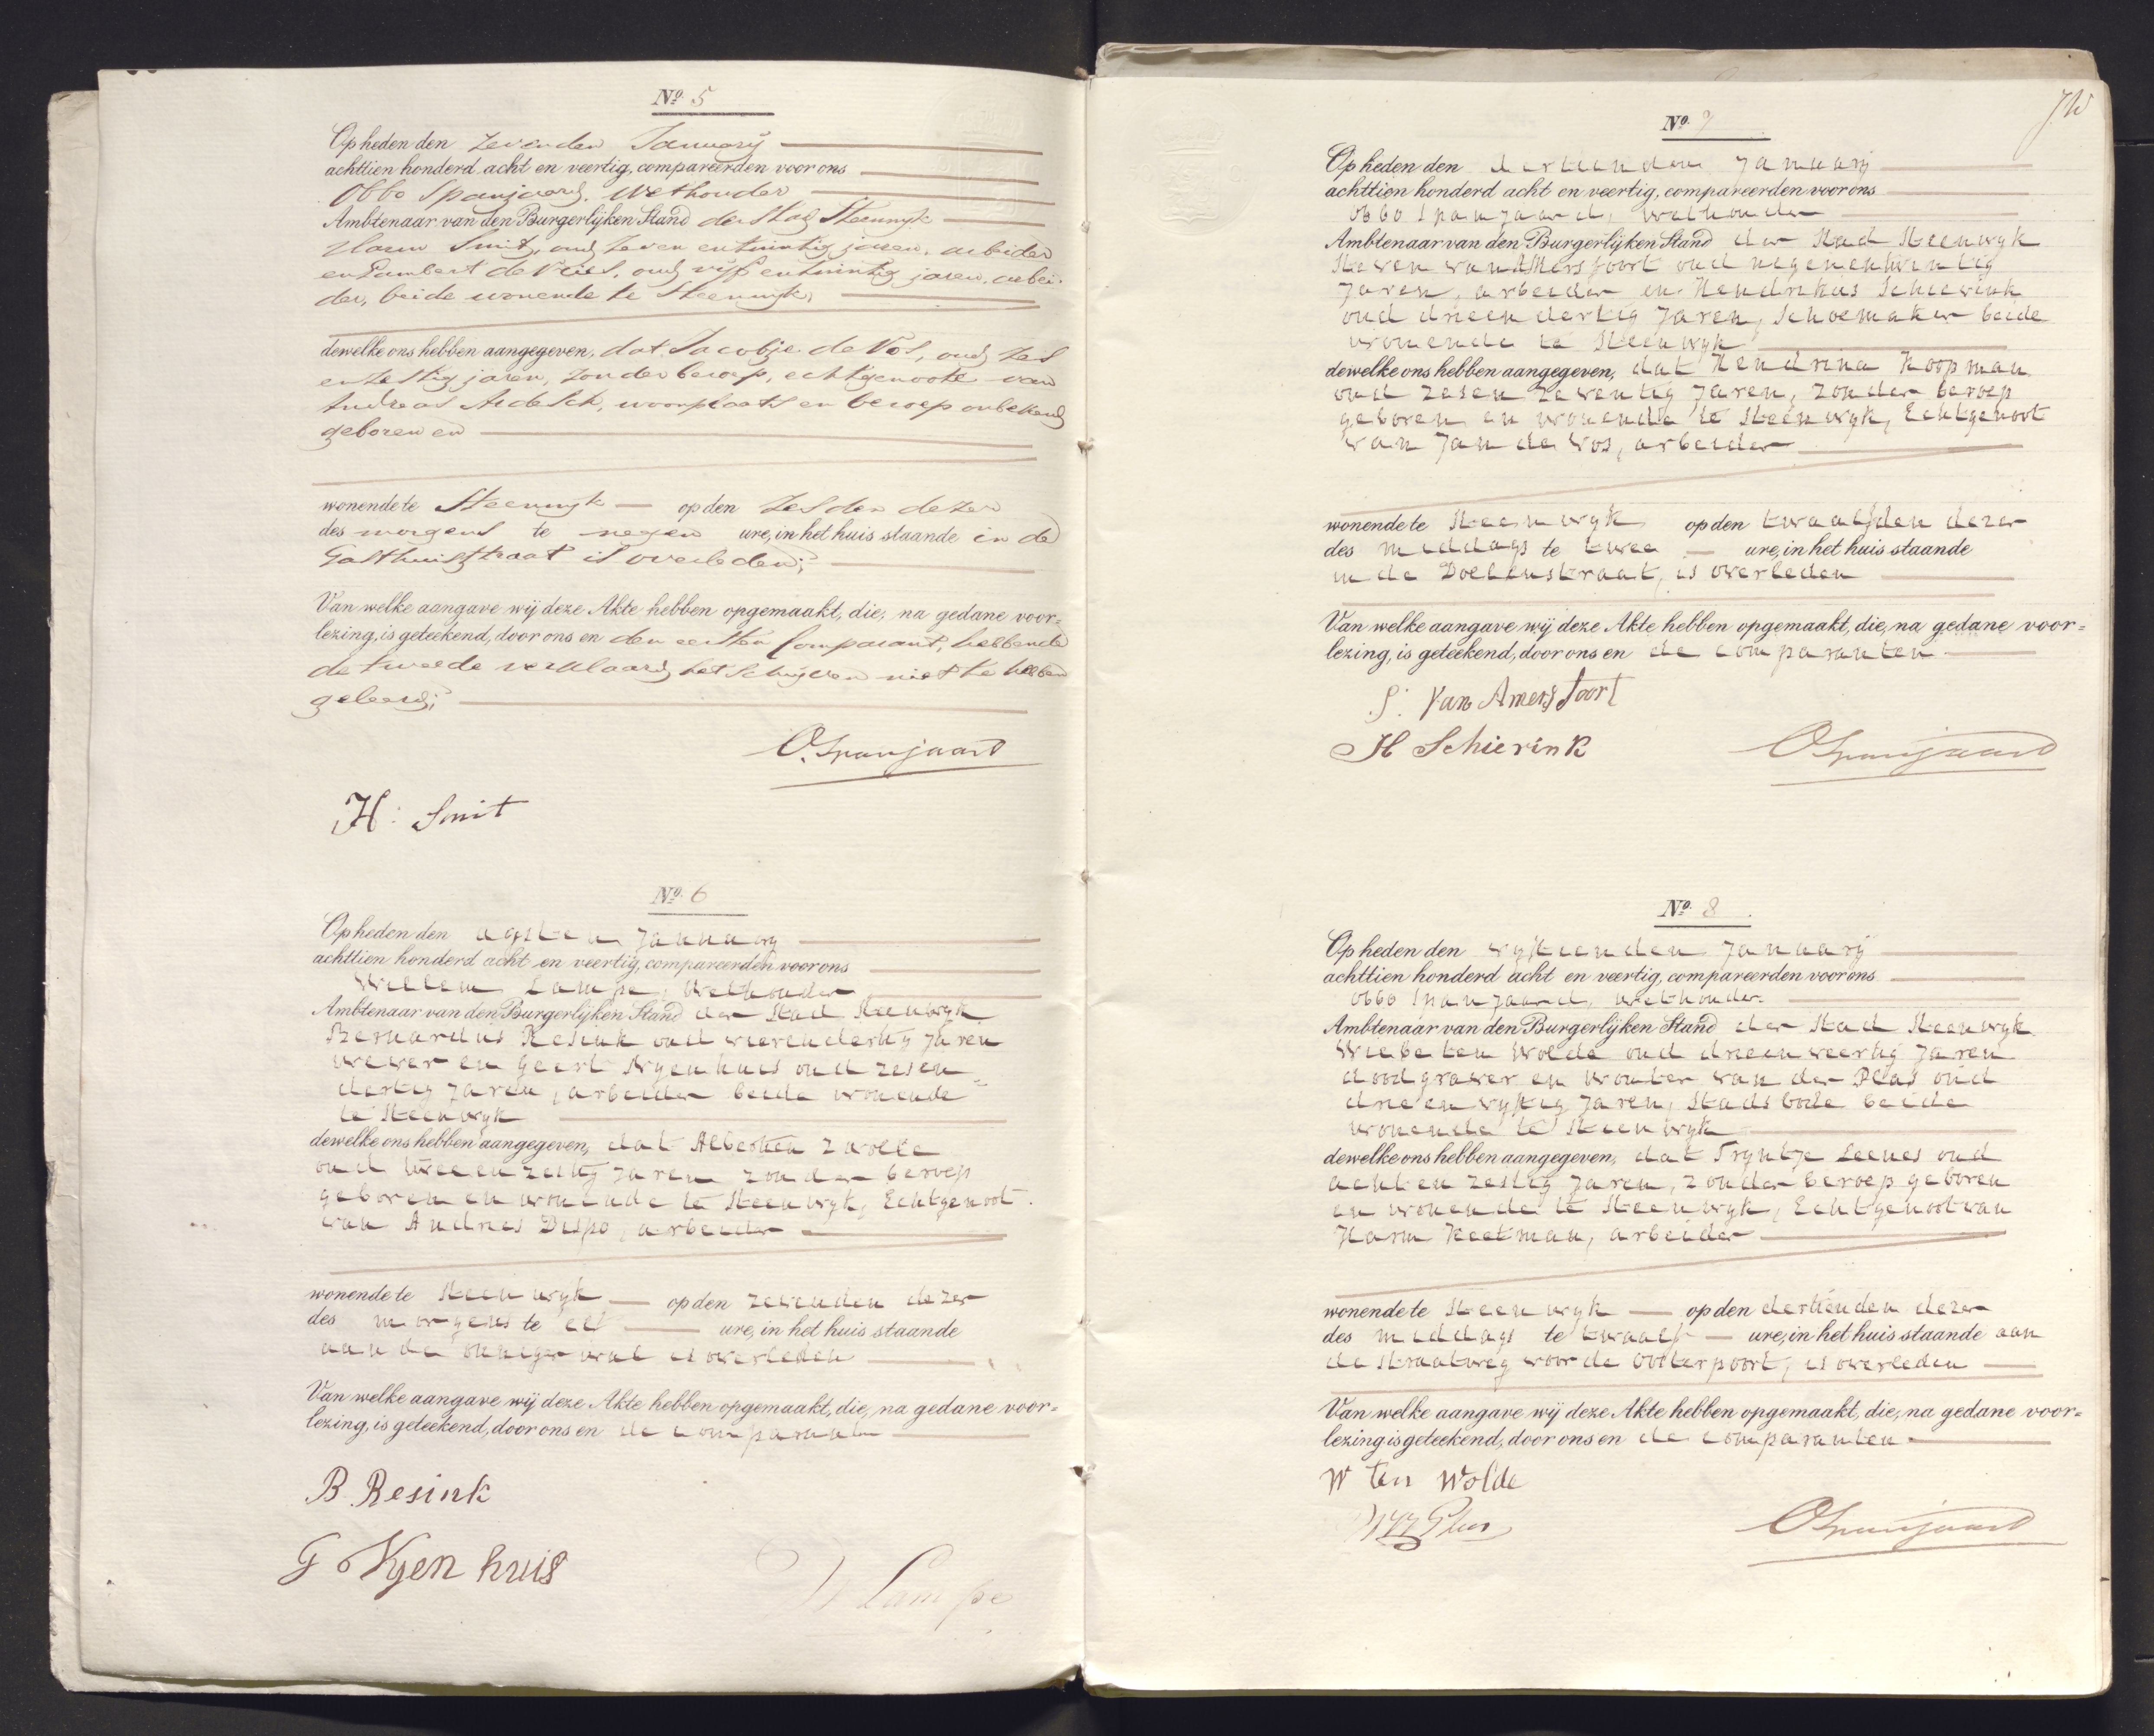 Nº 5
Op heden den zevenden Januarij
achttien honderd acht en veertig, compareerden voor ons
Obbo Spanjaard, Wethouder
Ambtenaar van den Burgerlijken Stand der Stad Steenwyk
Harm Smit, oud zeven en twintig jaren, arbeider
en Lambert de Vries, oud vijf en twintig jaren, arbei-
der, beide wonende te Steenwijk,
dewelke ons hebben aangegeven, dat Jacobje de Vos, oud zes
en zestig jaren, zonder beroep, echtgenoote van
Andreas, woonplaats en beroep onbekend
geboren en
wonende te Steenwijk op den zesden dezer
des morgens te negen ure, in het huis staande in de
Gasthuisstraat is overleden;
Van welke aangave wij deze Akte hebben opgemaakt, die, na gedane voor=
lezing, is geteekend, door ons en den eersten Comparant, hebbende
de tweede verklaard het schrijven niet te hebben
geleerd;
O. Spanjaard
H: Smit
Nº 6
Op heden den agsten January
achttien honderd acht en veertig, compareerden voor ons
Willem Lampe, Wethouder
Ambtenaar van den Burgerlijken Stand der Stad Steenwyk
Bernardus Resink oud vierendertig Jaren
wever en Geert Nyenhuis oud zesen=
dertig Jaren, arbeider beide wonende
te Steenwyk
dewelke ons hebben aangegeven, dat Albertien Zwolle
oud tweeenzestig Jaren zonder beroep
geboren en wonende te Steenwyk, Echtgenoot
van Andries Dispo, arbeider
wonende te Steenwyk op den zevenden dezer
des morgens te elf ure, in het huis staande
aan de Onnigerwal is overleden
Van welke aangave wij deze Akte hebben opgemaakt, die, na gedane voor=
lezing, is geteekend, door ons en de comparanten
B. Resink
G Nyenhuis
W Lampe
Nº 7
Op heden den dertienden Januarij
achttien honderd acht en veertig, compareerden voor ons
Obbo Spanjaard, Wethouder
Ambtenaar van den Burgerlijken Stand der Stad Steenwyk
Steven van AMersfoort oud negenentwintig
Jaren, arbeider en Hendrikus Schierink
oud drieendertig Jaren, Schoemaker beide
wonende te Steenwyk
dewelke ons hebben aangegeven, dat Hendrina Koopman
oud zesenzeventig Jaren, zonder beroep
geboren en wonende te Steenwyk, Echtgenoot
van Jan de Vos, arbeider
wonende te Steenwyk op den twaalfden dezer
des middags te twee ure, in het huis staande
in de Doelenstraat, is overleden
Van welke aangave wij deze Akte hebben opgemaakt, die, na gedane voor=
lezing, is geteekend, door ons en de comparanten
S: Van Amersfoort
H Schierink
O Spanjaard
Nº 8
Op heden den vyftienden Januarij
achttien honderd acht en veertig, compareerden voor ons
Obbo Spanjaard, wethouder
Ambtenaar van den Burgerlijken Stand der Stad Steenwyk
Wiebe ten Wolde oud drieenveertig Jaren
doodgraver en Wouter van der Plas oud
drieenvyftig Jaren, Stadsbode beide
wonende te Steenwyk
dewelke ons hebben aangegeven, dat Tryntje Leenes oud
achtenzestig Jaren, zonder beroep geboren
en wonende te Steenwyk, Echtgenoot van
Harm Keetman, arbeider
wonende te Steenwyk op den dertienden dezer
des middags te twaalf ure, in het huis staande aan
de Straatweg voor de Oosterpoort, is overleden
Van welke aangave wij deze Akte hebben opgemaakt, die, na gedane voor=
lezing is geteekend, door ons en de comparanten
W ten Wolde
O Spanjaard